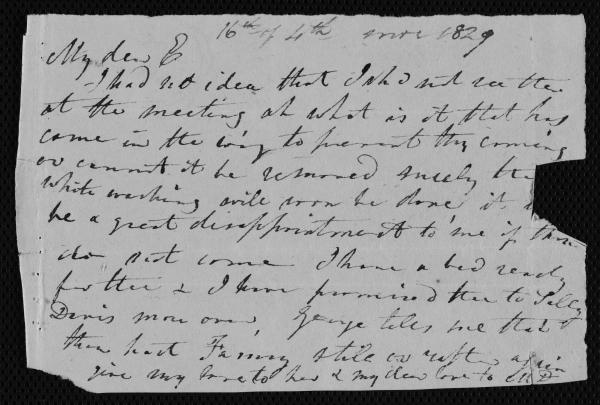 16th of 4th mo 1829
My dear E
I had no idea that I shd not see thee
at the meeting ah what is it that has
come in the way to prevent thy coming
or cannot it be removed surely the
white washing will soon be done it
be a great disappointment to me if thou
do not come I have a bed ready
for thee & I have promised thee to Sally
Davis more over, George tells me that
thou hast Fanny still or
give my love to her & my dear love to